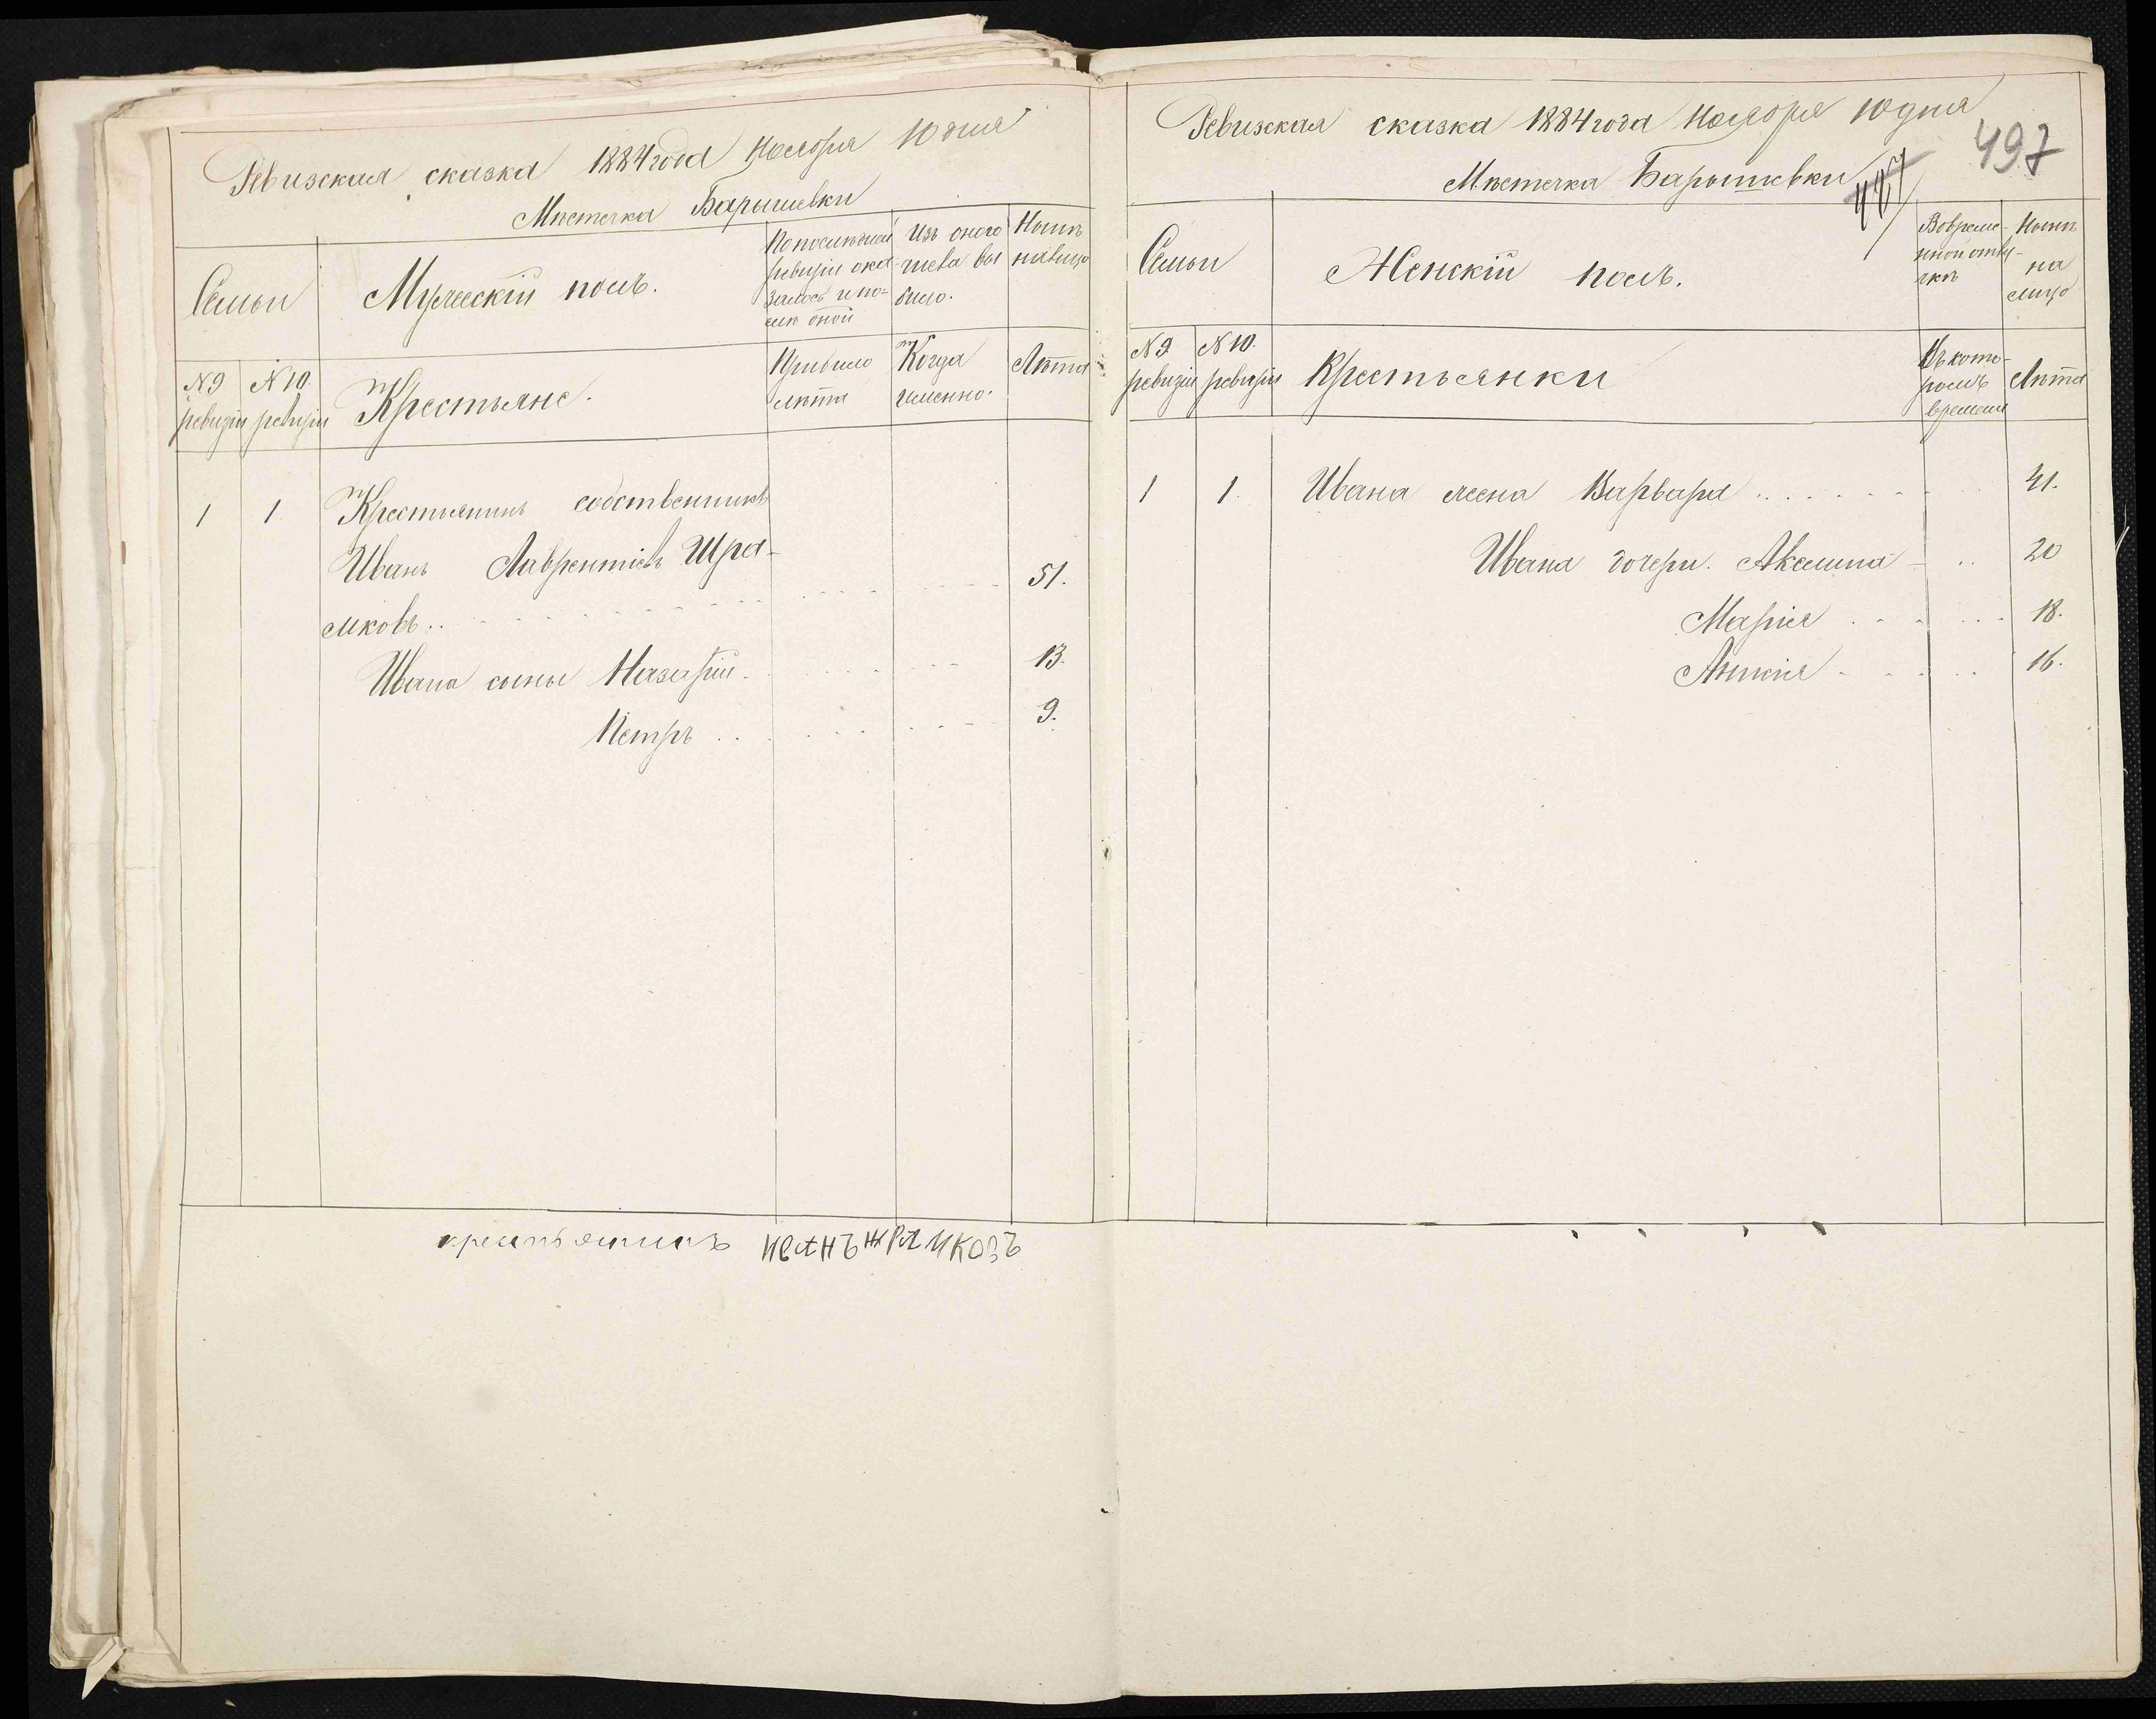 Ревизская сказка 1884 года Ноября 10 дня
Мѣстечка Барышевки
Семьи
Мужескій полъ.
По последней ревизіи ока-
залось и по-
слѣ оной
Изъ оного
числа вы
было.
Нынѣ
на лицо
№ 9
ревизіи
№ 10.
ревизіи
Крестьяне.
Прибыло
лѣта
Когда
именно.
Лѣта
1 1. Крестьянинъ собственникъ
Иванъ Лаврентіевъ Шра-
мковъ . . 51.
Ивана сыны Назарій. 13.
Петръ . . 9.
крестьянинъ ИВАНЪ ШРАМКОВЪ
Ревизская сказка 1884 года Ноября 10 дня
497
Мѣстечка Барышевки
Семьи
Женскій полъ.
Во време-
нной отлу-
чкѣ
Нынѣ
на
лицо
№ 9
ревизіи
№ 10.
ревизіи
Крестьянки
Съ кото-
рого
времени
Лѣта
1 1. Ивана жена Варвара . . . 41.
Ивана дочери. Акелина . . 20
Марія . . . 18.
16.